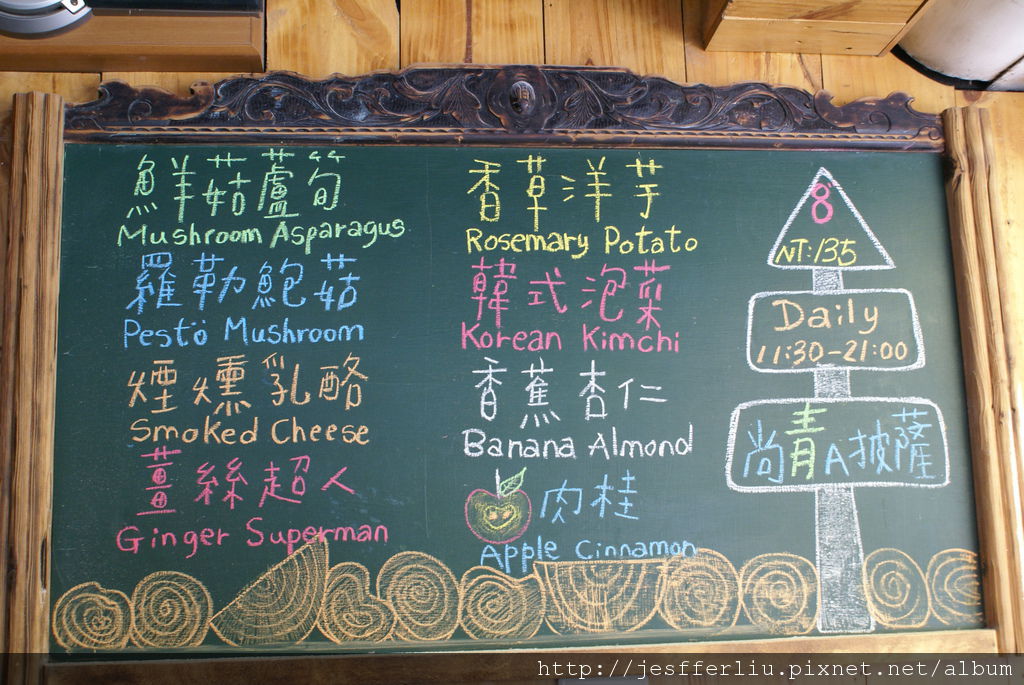 鮮菇蘆筍
Mushroom Asparagus
羅勒鮑菇
Pesto Mushroom
煙燻乳酪
Smoked Cheese
薑絲超人
Ginger Superman
香草洋芋
Rosemary Potato
韓式泡菜
Korean Kimchi
香蕉杏仁
Banana Almond
肉桂
Apple Cinnamon
8"
NT:135
Daily
11:30-21:00
尚青A披薩
http://jesfferliu.pixnet.net/album